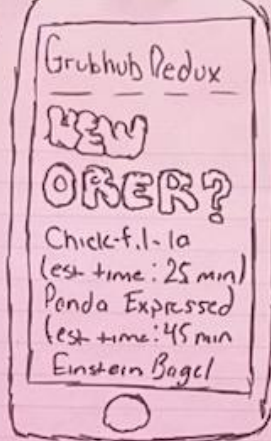 Grubhub Redux
NEW
ORER?
Chick-f.l-la
(est time: 25 min)
Panda Expressed
(est time: 45 min
Einstein Bagel